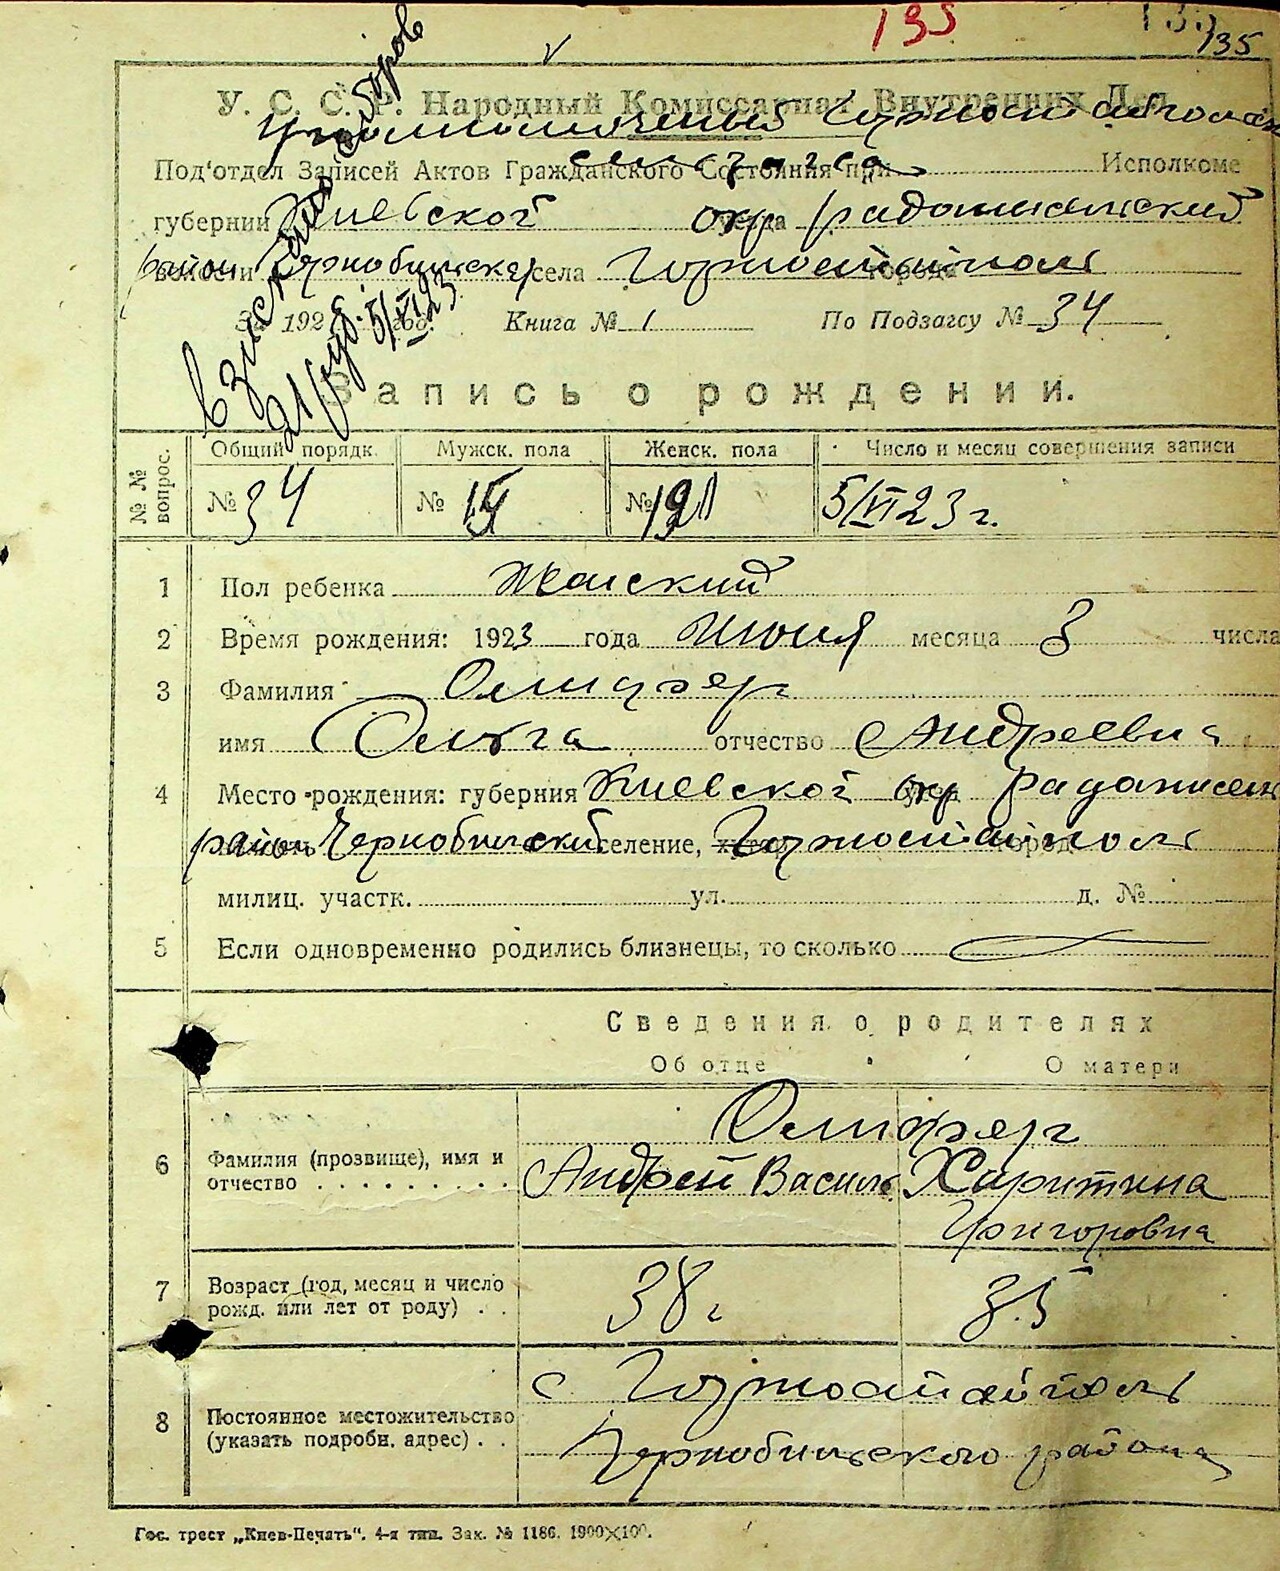 135
135
У. С. С. Р. Народный Комиссариат Внутренних Дел
Уполномоченный
Под'отдел Записей Актов Гражданского Состояния при Исполкоме
губернии Киевской окр Радомысльский
район Чернобильске села Горностайполь
За 192 год. Книга № 1 По Подзагсу № 34
Взыскано сборов
21 руб. 5/VI 23
Запись о рождении.
№ № вопрос. Общий порядк. Мужск. пола Женск. пола Число и месяц совершения записи
№ 34 № 15 № 19 5/VI 23 г.
1 Пол ребенка Женский
2 Время рождения: 1923 года Июня месяца 3 числа
3 Фамилия Олифер
имя Ольга отчество Андреевна
4 Место рождения: губерния Киевской окр Радомисель
район Чернобильский селение, хутор Горностайполь
милиц. участк. ул. д. №
5 Если одновременно родились близнецы, то сколько
Сведения о родителях
Об отце О матери
Олифер
6 Фамилия (прозвище), имя и отчество Андрей Василь Харитина
Григоровна
7 Возраст (год, месяц и число рожд. или лет от роду) 38 г 35
8 Постоянное местожительство (указать подробн. адрес) с Горностайполь
Чернобильского района
Гос. трест „Киев-Печать". 4-я тип. Зак. № 1186. 1900×100.